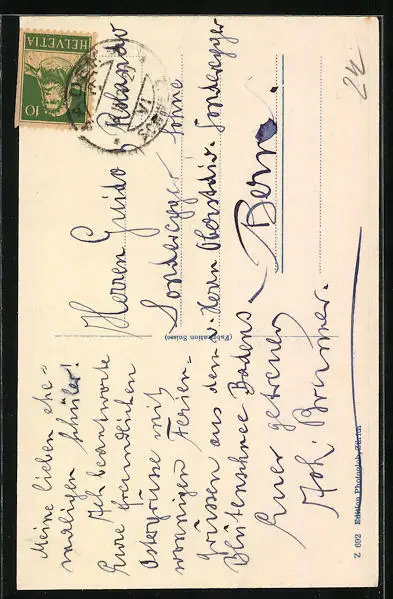 Meine lieben ehe=
maligen Schüler!
Ich beantworte
Eure freundlichen
Ostergrüsse mit
wonnigen Ferien-
grüssen aus dem
Blütenschnee Badens
Euer getreuer
Joh: Brunner.
(Fabrication Suisse)
HELVETIA
10
Herren Guido & Rolando
Sonderegger Söhne
v. Herrn Oberstdiv. Sonderegger
Bern.
24
Z 692 Edition Photoglob, Zürich